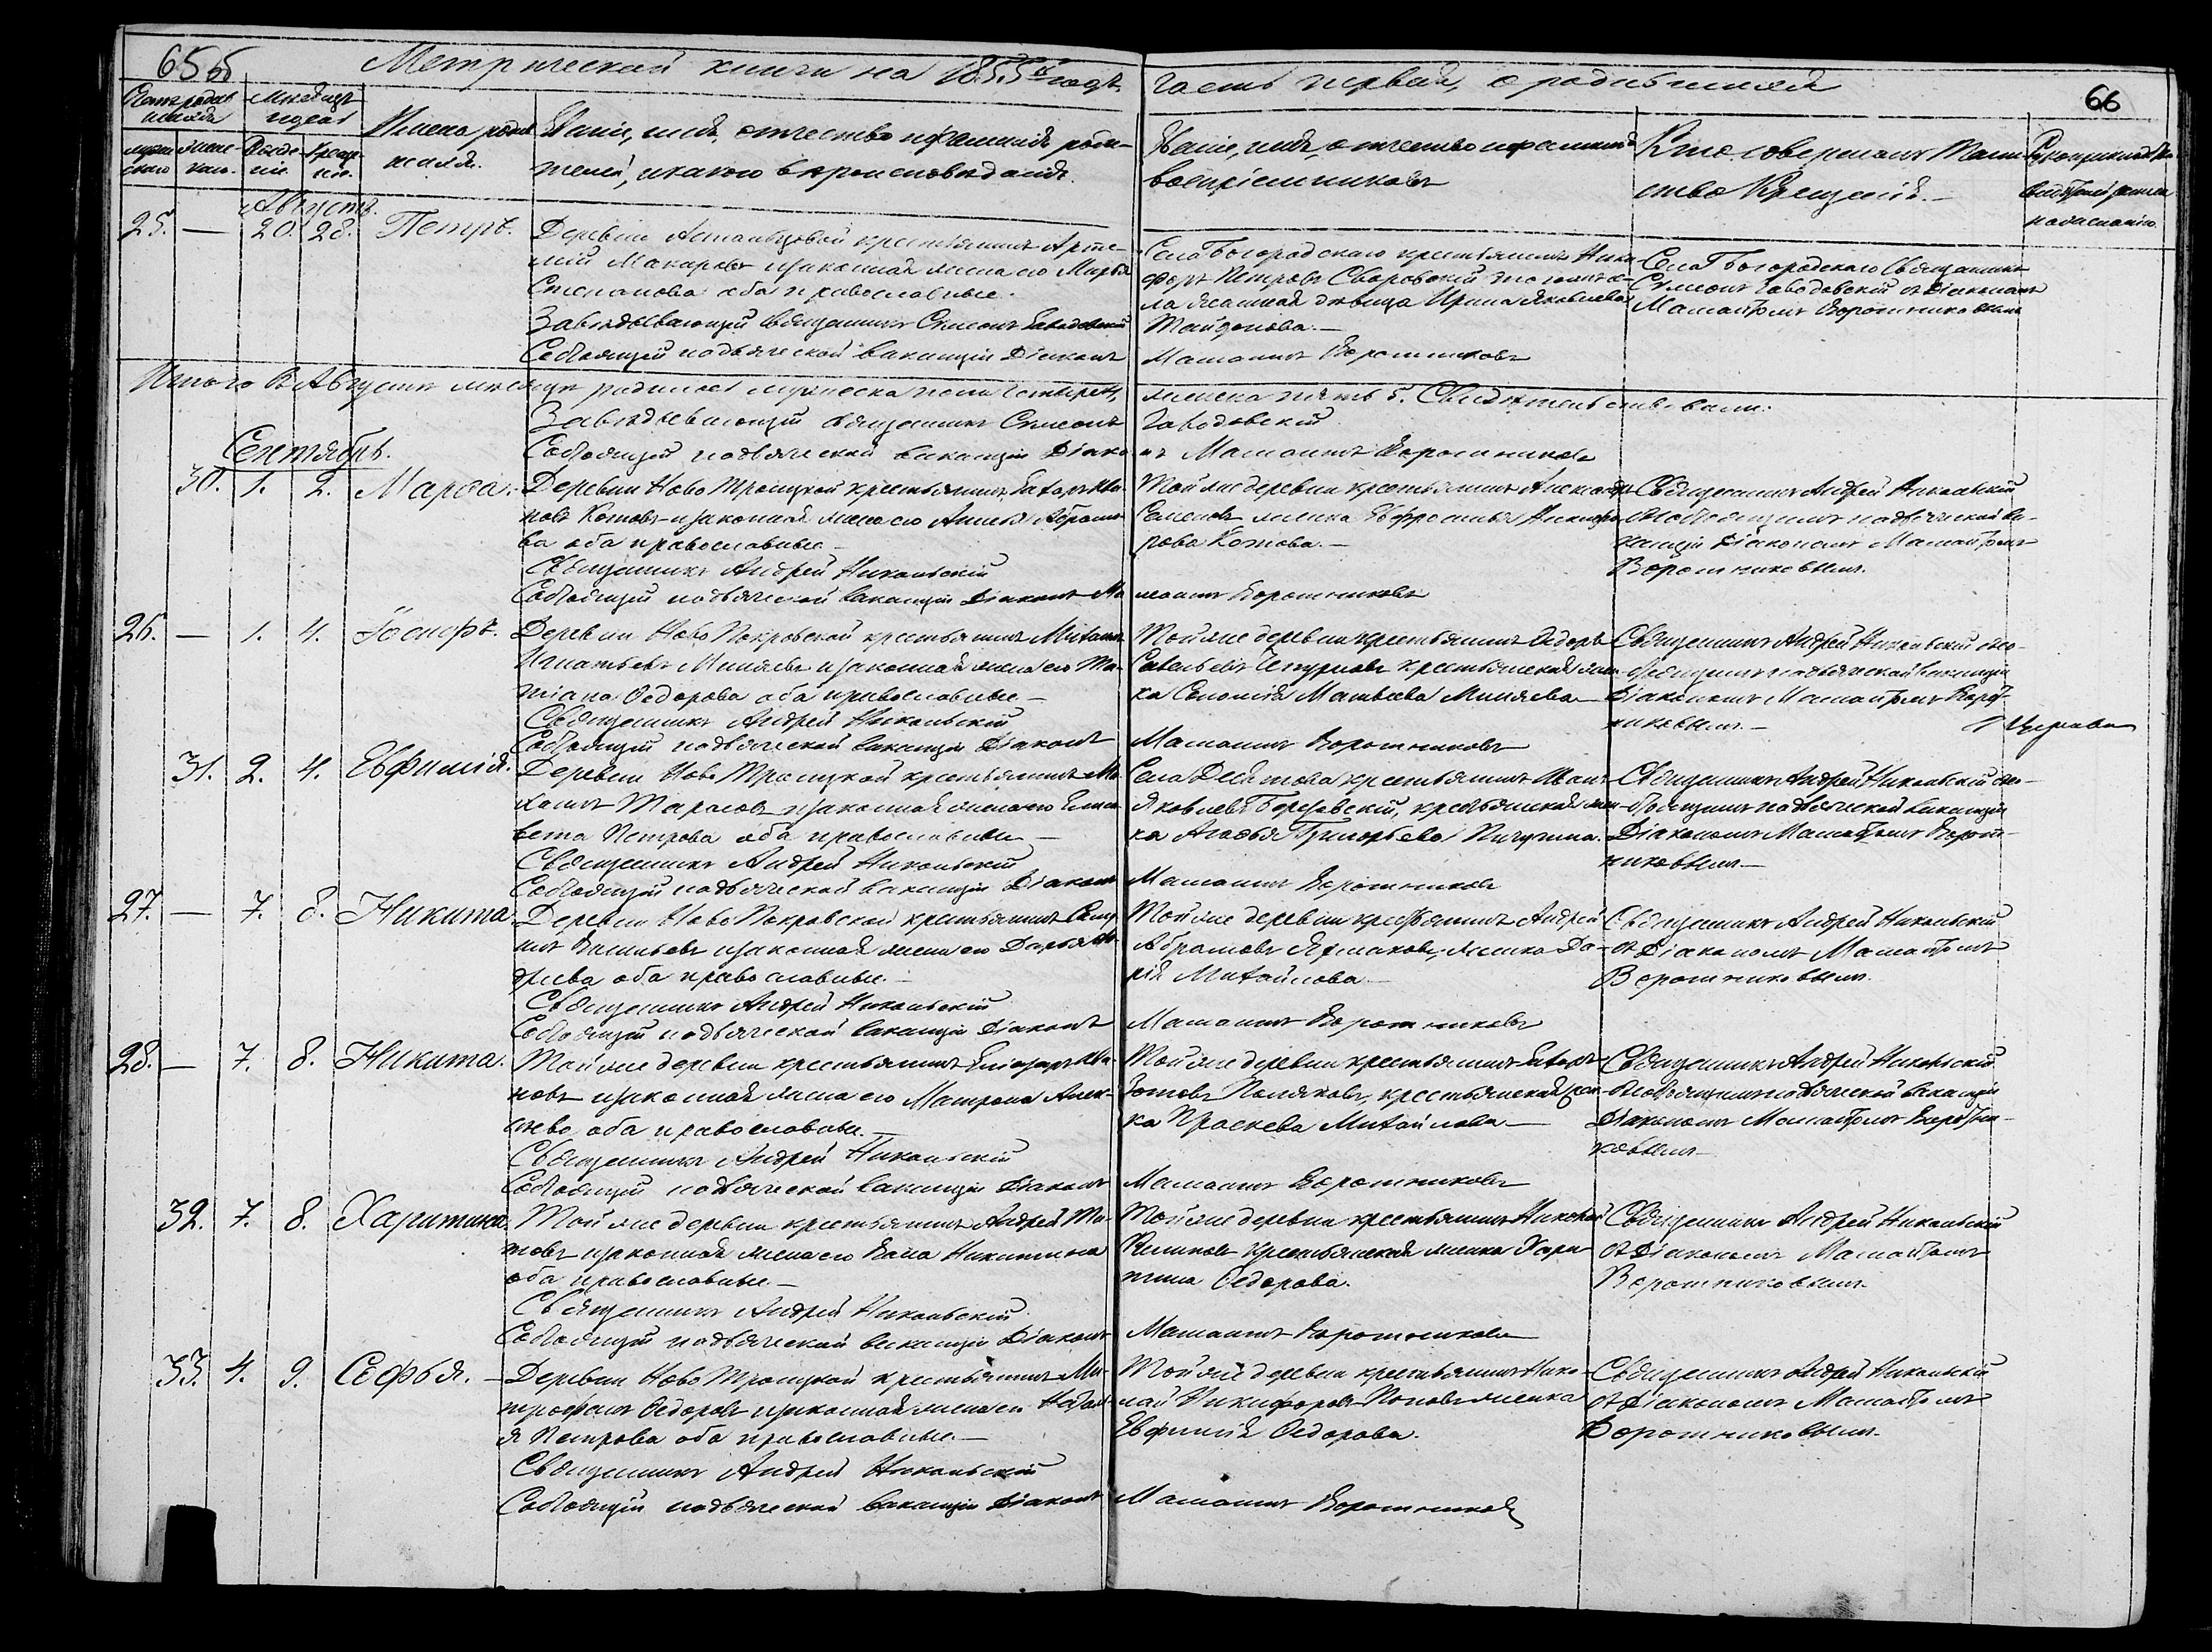 65об
Метрической книги на 1855й годъ
часть первая, о родившихся
66
Счетъ родившихся
Мѣсяцъ и день
Имена родившихся.
Званіе, имя, отчество и фамилія родителей, и какого вѣроисповѣданія.
Званіе, имя, отчество и фамилія воспріемниковъ
Кто совершалъ Таинство Крещенія.
мужескаго
женскаго
Рожденія
Крещенія
Августъ.
25. — 20. 28. Петръ.
Деревни крестьянинъ Артемій Макаровъ и законная жена его Марья
Степанова оба православные.
Завѣдывающій священникъ Симеонъ Заводовскій
Состоящій на дьяческой вакансіи Діаконъ
Села Богородскаго крестьянинъ Никифоръ Петровъ
дѣвица Ирина Яковлева
Мамантъ Воротниковъ
Села Богородскаго Священникъ
Симеонъ Заводовскій съ Діакономъ
Мамантомъ Воротниковымъ
Итого въ Августѣ мѣсяцѣ родилось мужеска пола четыре 4,
женска пять 5. Свидѣтельствовали:
Завѣдывающій священникъ Симеонъ
Заводовскій
Состоящій на дьяческой вакансіи Діаконъ
Мамантъ Воротниковъ
Сентябрь.
30. 1. 2. Марѳа.
Деревни Ново Троицкой крестьянинъ Захаръ Ивановъ Котовъ и законная жена его Абрамова оба православные —
Священникъ Андрей Никольскій
Состоящій на дьяческой вакансіи Діаконъ Мамантъ Воротниковъ
Той же деревни крестьянинъ Александръ
Семеновъ женка Евфросинья Никифорова Котова. —
Священникъ Андрей Никольскій
съ состоящимъ на дьяческой вакансіи Діакономъ Мамантомъ
Воротниковымъ.
26. — 1. 4. Іосифъ.
Деревни Ново Покровской крестьянинъ Михаилъ
Игнатьевъ Миняевъ и законная жена его Татіана Ѳедорова оба православные —
Священникъ Андрей Никольскій
Состоящій на дьяческой вакансіи Діаконъ
Той же деревни крестьянинъ Ѳедоръ
Савельевъ Чепурновъ крестьянская женка Соломія Матвѣева Миняева —
Мамантъ Воротниковъ
Священникъ Андрей Никольскій съ состоящимъ на дьяческой вакансіи
Діакономъ Мамантомъ Воротниковымъ. —
31. 2. 4. Евфимія.
Деревни Ново Троицкой крестьянинъ
Тарасовъ и законная жена его Елисавета Петрова оба православные —
Священникъ Андрей Никольскій
Состоящій на дьяческой вакансіи Діаконъ
Села Десятова крестьянинъ Иванъ
Яковлевъ Березовскій, крестьянская женка Агаѳья Григорьева Пичугина.
Мамантъ Воротниковъ
Священникъ Андрей Никольскій съ состоящимъ на дьяческой вакансіи
Діакономъ Мамантомъ Воротниковымъ —
27. — 7. 8. Никита.
Деревни Ново Покровской крестьянинъ
Васильевъ и законная жена его Дарья
оба православные. —
Священникъ Андрей Никольскій
Состоящій на дьяческой вакансіи Діаконъ
Той же деревни крестьянинъ Андрей
Абрамовъ Ермаковъ, женка Дарія Михайлова —
Мамантъ Воротниковъ
Священникъ Андрей Никольскій
съ Діакономъ Мамантомъ
Воротниковымъ.
28. — 7. 8. Никита.
Той же деревни крестьянинъ Елизаръ Ивановъ и законная жена его Матрона Алексѣева оба православные. —
Священникъ Андрей Никольскій
Состоящій на дьяческой вакансіи Діаконъ
Той же деревни крестьянинъ Захаръ
Зотовъ Поляковъ, крестьянская женка Праскева Михайлова —
Мамантъ Воротниковъ
Священникъ Андрей Никольскій
съ состоящимъ на дьяческой вакансіи
Діакономъ Мамантомъ Воротниковымъ —
32. 7. 8. Харитина.
Той же деревни крестьянинъ Андрей
и законная жена его Никитина
оба православные —
Священникъ Андрей Никольскій
Состоящій на дьяческой вакансіи Діаконъ
Той же деревни крестьянинъ Николай
крестьянская женка Харитина Ѳедорова.
Мамантъ Воротниковъ
Священникъ Андрей Никольскій
съ Діакономъ Мамантомъ
Воротниковымъ
33. 4. 9. Софья. —
Деревни Ново Троицкой крестьянинъ Митрофанъ Ѳедоровъ и законная жена его Наталья Петрова оба православные. —
Священникъ Андрей Никольскій
Состоящій на дьяческой вакансіи Діаконъ
Той же деревни крестьянинъ Николай Никифоровъ Поповъ женка
Евфимія Ѳедорова.
Мамантъ Воротниковъ
Священникъ Андрей Никольскій
съ Діакономъ Мамантомъ
Воротниковымъ.